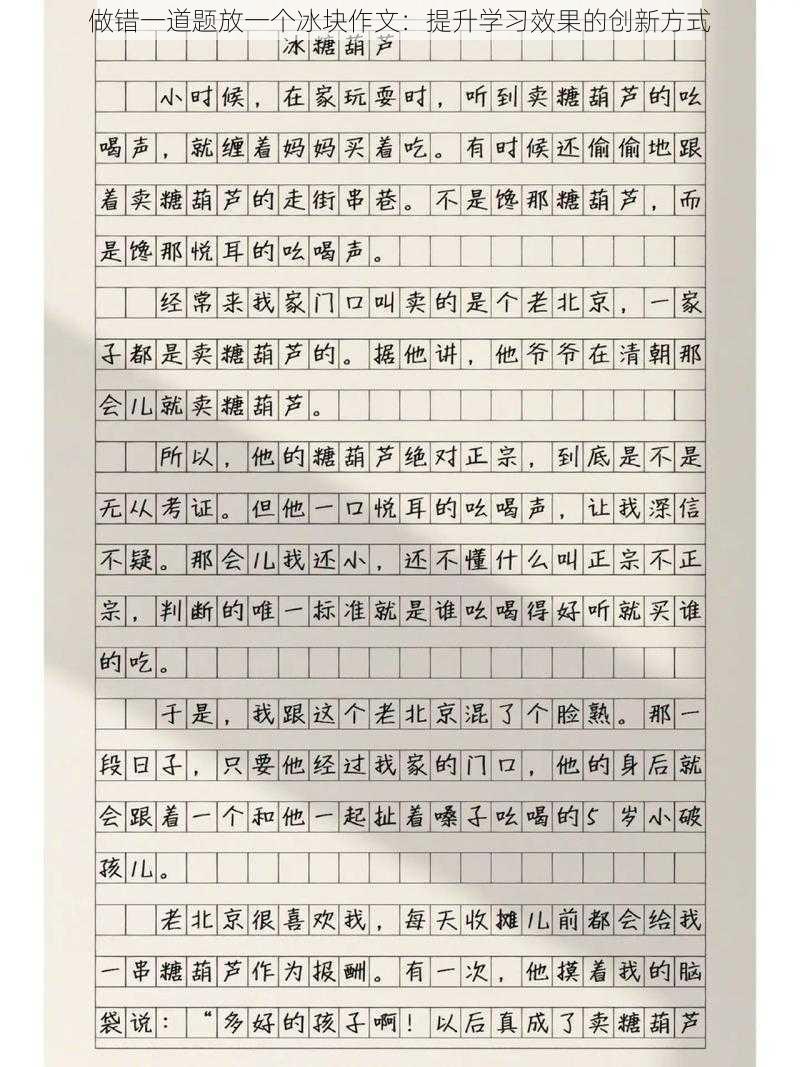 做错一道题放一个冰块作文：提升学习效果的创新方式
冰糖葫芦
小时候，在家玩耍时，听到卖糖葫芦的吆
喝声，就缠着妈妈买着吃。有时候还偷偷地跟
着卖糖葫芦的走街串巷。不是馋那糖葫芦，而
是馋那悦耳的吆喝声。
经常来我家门口叫卖的是个老北京，一家
子都是卖糖葫芦的。据他讲，他爷爷在清朝那
会儿就卖糖葫芦。
所以，他的糖葫芦绝对正宗，到底是不是
无从考证。但他一口悦耳的吆喝声，让我深信
不疑。那会儿我还小，还不懂什么叫正宗不正
宗，判断的唯一标准就是谁吆喝得好听就买谁
的吃。
于是，我跟这个老北京混了个脸熟。那一
段日子，只要他经过我家的门口，他的身后就
会跟着一个和他一起扯着嗓子吆喝的5岁小破
孩儿。
老北京很喜欢我，每天收摊儿前都会给我
一串糖葫芦作为报酬。有一次，他摸着我的脑
袋说：“多好的孩子啊！以后真成了卖糖葫芦